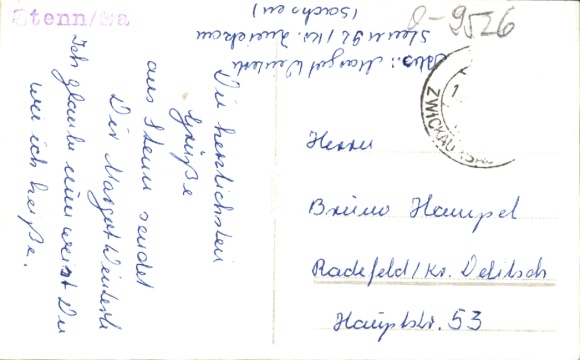 Stenn/Sa
0-9526
Abs.: Margot Weiterli
Stenn 91 / Kr. Zwickau
(Sachsen)
ZWICKAU (SACHS
Die herzlichsten
Grüße
aus Stenn sendet
Dir Margot Weiterli
Ich glaube nun weist Du
wie ich heiße.
Herrn
Bruno Hampel
Radefeld/Kr. Delitsch
Hauptstr. 53